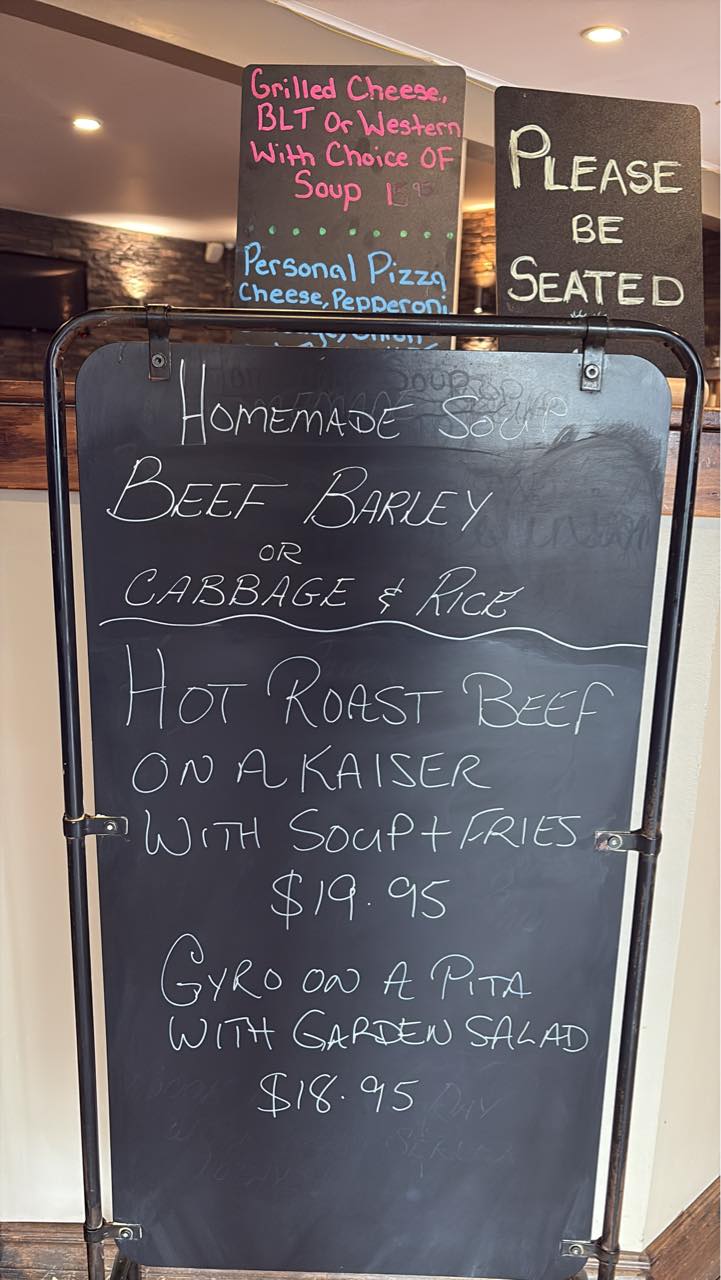 Grilled Cheese,
BLT Or Western
With Choice OF
Soup
Personal Pizza
Cheese, Pepperoni,
PLEASE
BE
SEATED
HOMEMADE SOUP
BEEF BARLEY
OR
CABBAGE & RICE
HOT ROAST BEEF
ON A KAISER
WITH SOUP + FRIES
$19.95
GYRO ON A PITA
WITH GARDEN SALAD
$18.95